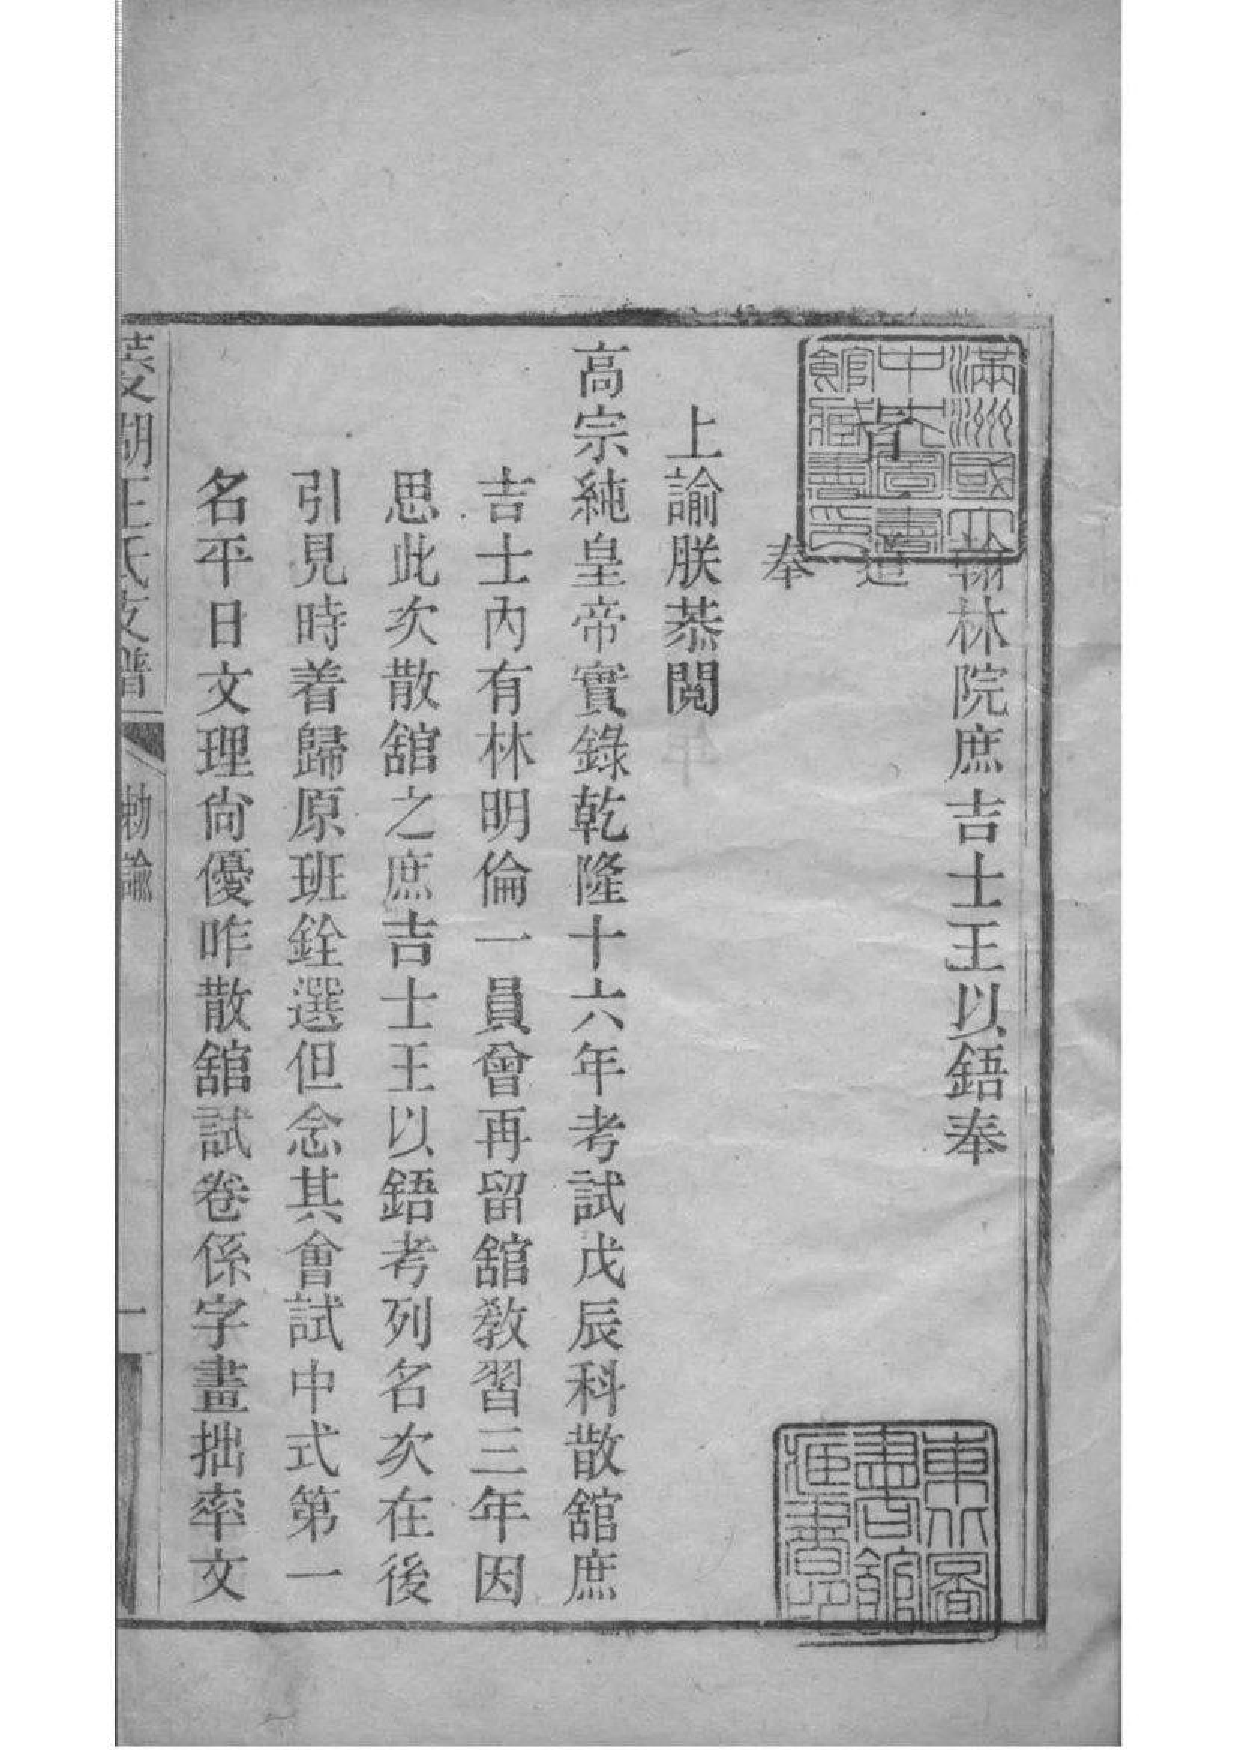 翰林院庶吉士王以鋙奉
旨一道
奉
上諭朕恭閱
高宗純皇帝實錄乾隆十六年考試戊辰科散舘庶
吉士內有林明倫一員曾再留舘教習三年因
思此次散舘之庶吉士王以鋙考列名次在後
引見時着歸原班銓選但念其會試中式第一
名平日文理尙優昨散舘試卷係字畫拙率文
菱湖王氏支譜
勅諭
一
滿洲國立
中央圖書
館藏書印
東北圖
書館
藏書印